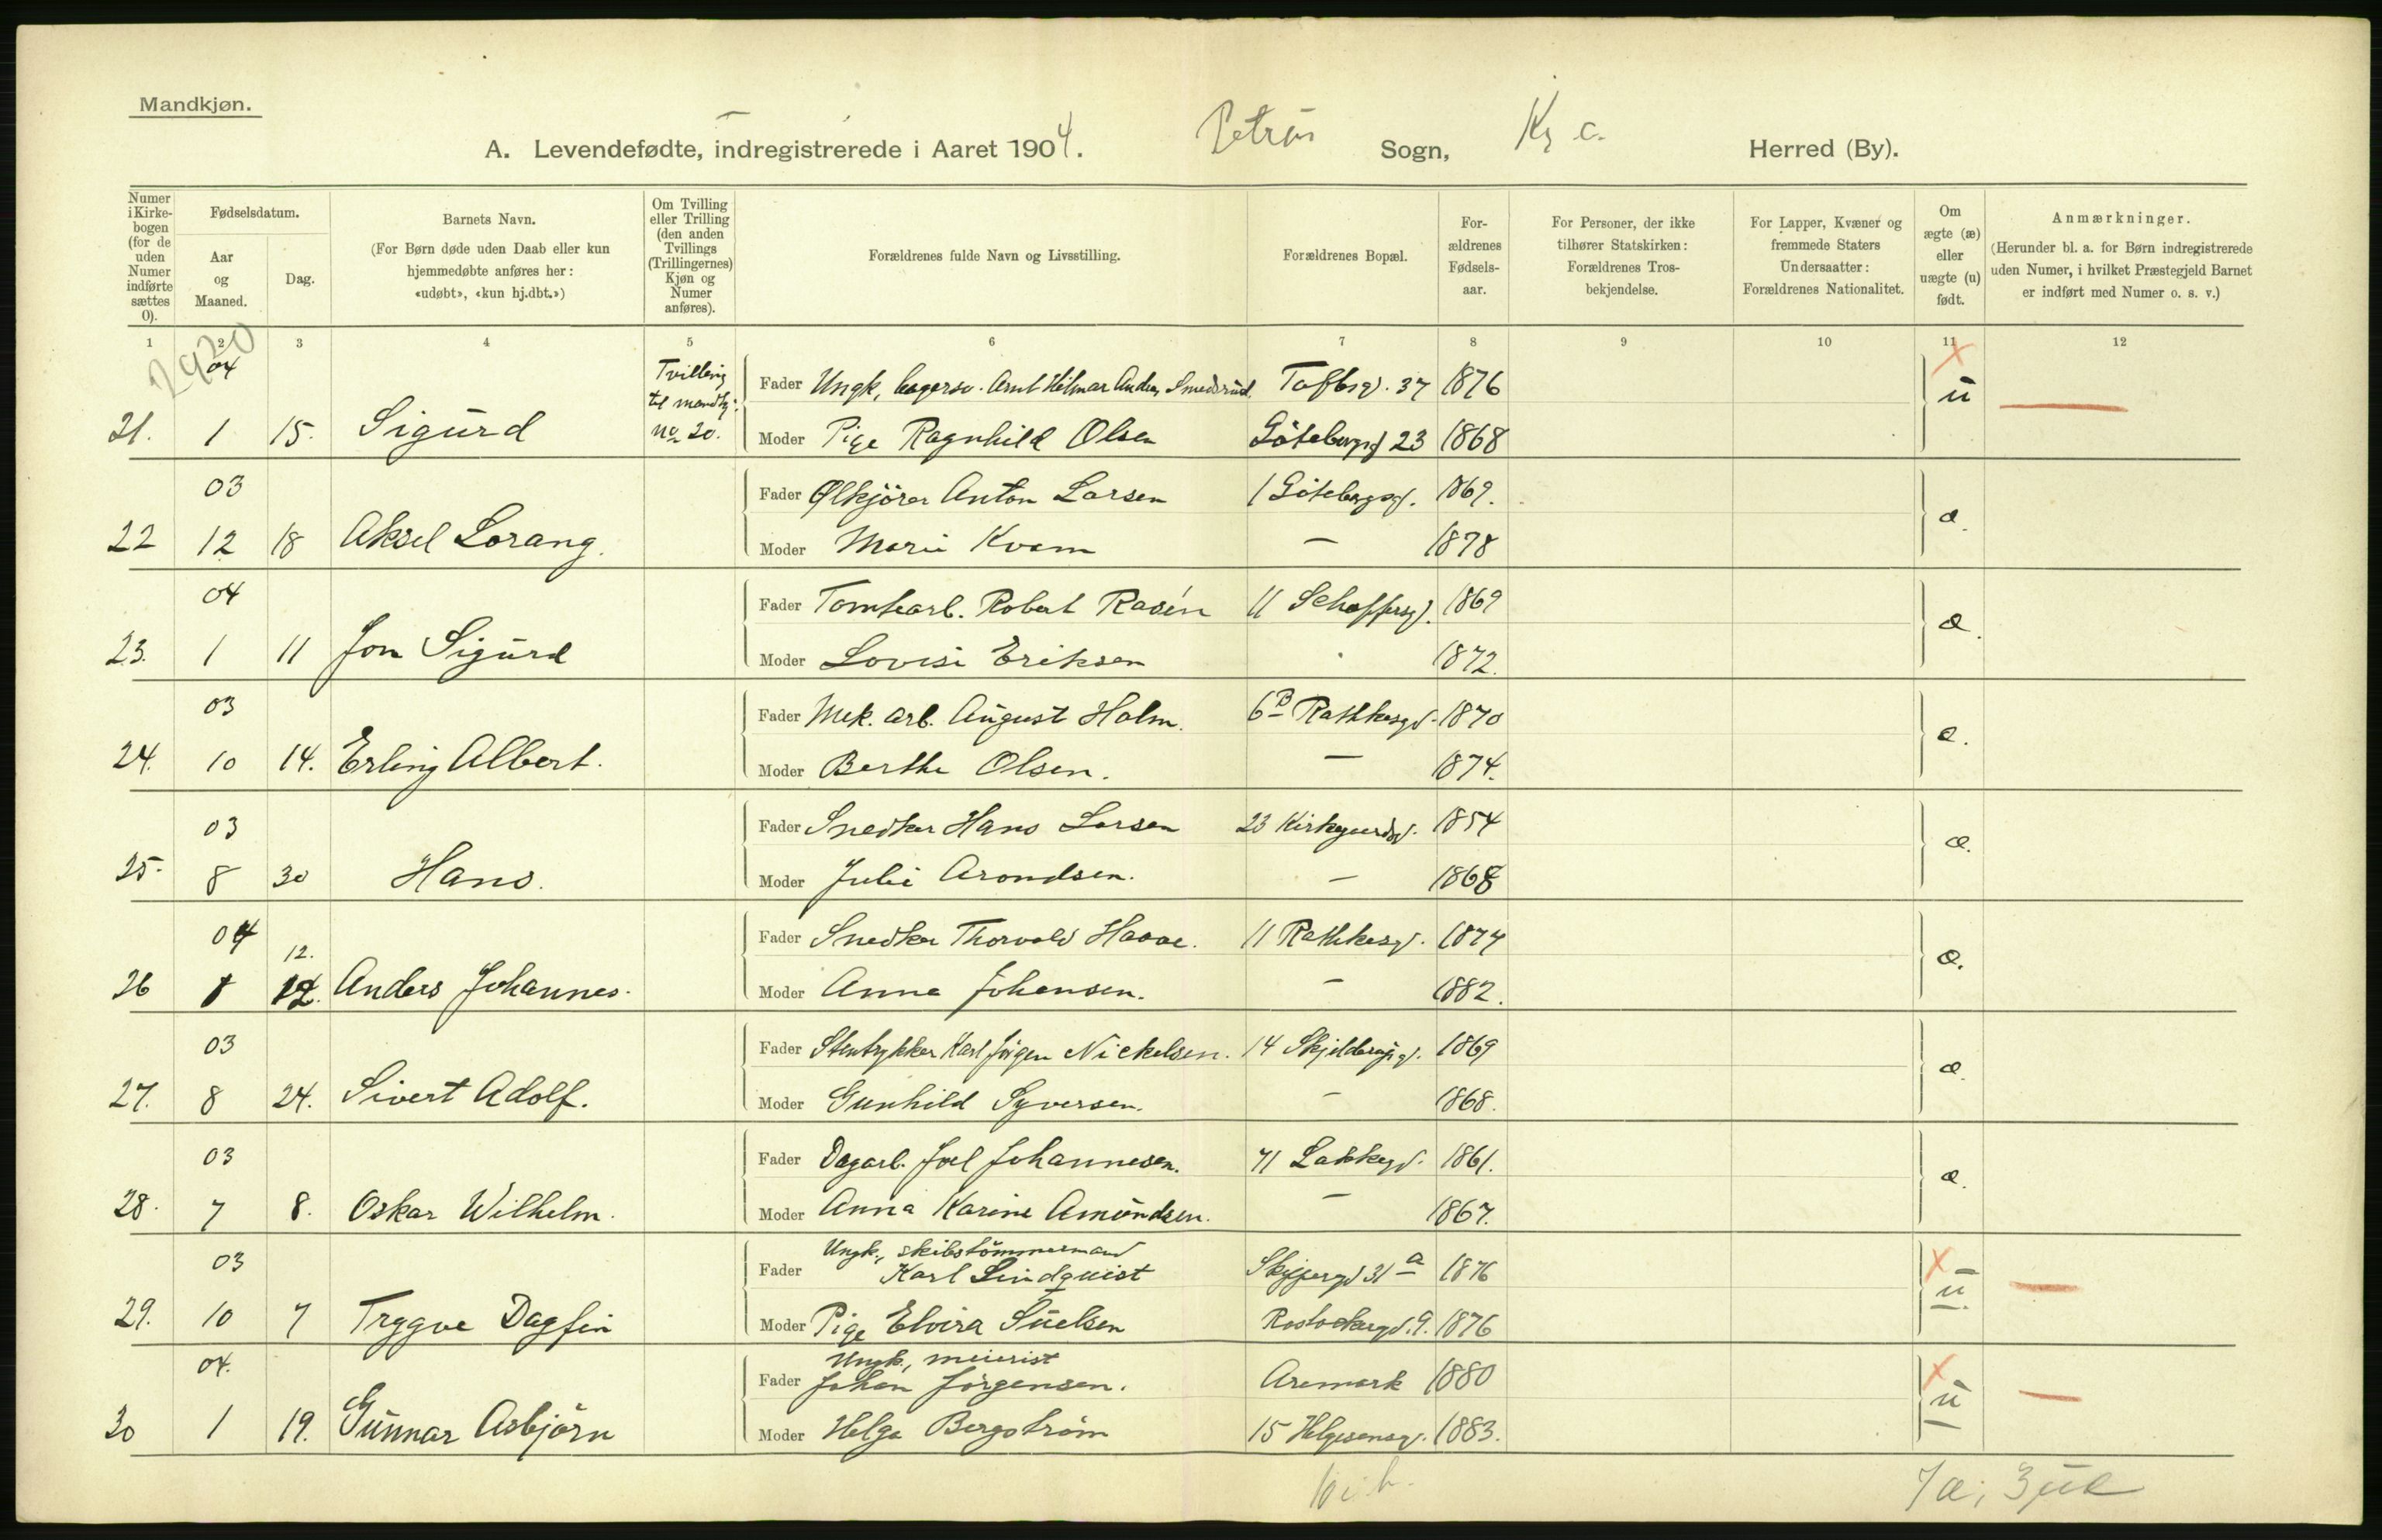 Mandkjøn.
A. Levendefødte, indregistrerede i Aaret 1904. Petrus Sogn, Kr a. Herred (By).
Numer i Kirkebogen (for de uden Numer indførte sættes 0).
Fødselsdatum.
Aar og Maaned.
Dag.
Barnets Navn.
(For Børn døde uden Daab eller kun hjemmedøbte anføres her: «udøbt», «kun hj.dbt.»)
Om Tvilling eller Trilling (den anden Tvillings (Trillingernes) Kjøn og Numer anføres).
Forældrenes fulde Navn og Livsstilling.
Forældrenes Bopæl.
Forældrenes Fødselsaar.
For Personer, der ikke tilhører Statskirken: Forældrenes Trosbekjendelse.
For Lapper, Kvæner og fremmede Staters Undersaatter: Forældrenes Nationalitet.
Om ægte (æ) eller uægte (u) født.
Anmærkninger.
(Herunder bl. a. for Børn indregistrerede uden Numer, i hvilket Præstegjeld Barnet er indført med Numer o. s. v.)
1 2 3 4 5 6 7 8 9 10 11 12
2920
04 Tvilling til mandkj. Fader Ungk, Arnt Hilmar Anders. Smedsrud. Toftesg. 37 1876 u
21. 1 15. Sigurd No 20. Moder Pige Ragnhild Olsen Göteborgg 23 1868
03 Fader Ølkjörer Anton Larsen 1 Göteborgg. 1869. æ.
22 12 18 Aksel Lorang. Moder Marie Kvam — 1878
04 Fader Tomtearb. Robert Rosén 11 Schaffersg. 1869 æ.
23. 1 11 Jon Sigurd Moder Lovise Eriksen 1872.
03 Fader Mek. arb. August Holm. 6B Rathkesgd. 1870 æ.
24. 10 14. Erling Albert. Moder Berthe Olsen. — 1874.
03 Fader Snedker Hans Larsen 23 Kirkegaardsg. 1854 æ.
25. 8 30 Hans. Moder Julie Arondsen. — 1868
04 12. Fader Snedker Thorvald Haave. 11 Rathkesg. 1874 æ.
26 1 12. Anders Johannes. Moder Anna Johansen. — 1882.
03 Fader Stentrykker Karl Jörgen Nickelsen. 14 Skjolderupsg. 1869 æ.
27. 8 24. Sivert Adolf. Moder Gunhild Syversen. — 1868.
03 Fader Dagarb. Joel Johannesen. 71 Lakkegd. 1861. æ.
28. 7 8. Oskar Wilhelm. Moder Anna Karine Amundsen. — 1867.
03 Fader Ungk., skibstömmermand
Karl Lindquist Skippergd 31a 1876 u.
29. 10 7 Trygve Dagfin Moder Pige Elvira Suelsen Rostockergd. 9. 1876
04. Fader Ungk., meierist
Johan Jörgensen. Aremark 1880 u
30 1 19. Gunnar Asbjörn Moder Helga Bergström 15 Helgesensg. 1883.
7 æ; 3 uæ